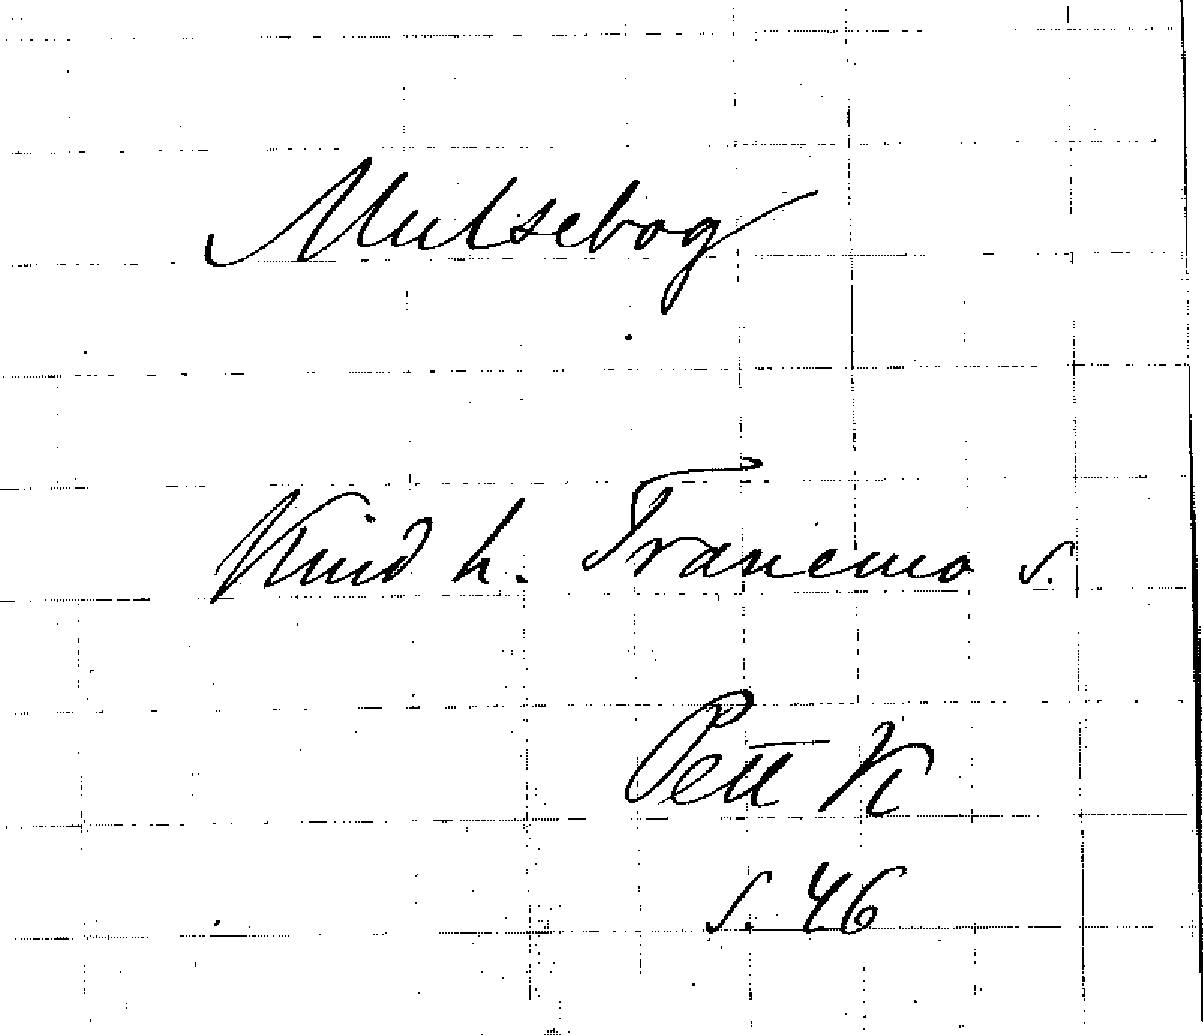 Mulsebog
Kind h. Tranemo s.
Pett K
s. 46